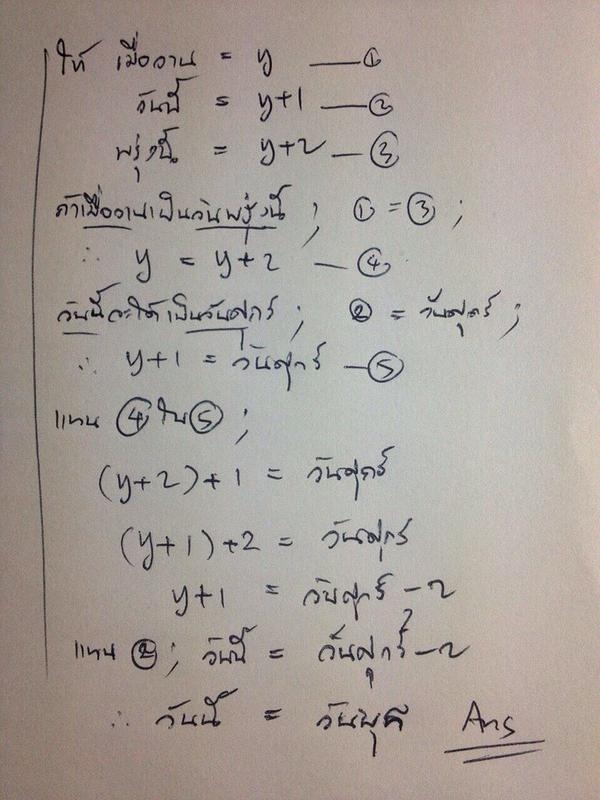 ให้ เมื่อวาน = y —①
วันนี้ = y+1 —②
พรุ่งนี้ = y+2 —③
ถ้าเมื่อวานเป็นวันพรุ่งนี้ ; ① = ③ ;
∴ y = y+2 —④
วันนี้จะได้เป็นวันศุกร์ ; ② = วันศุกร์ ;
∴ y+1 = วันศุกร์ —⑤
แทน ④ ใน ⑤ ;
(y+2)+1 = วันศุกร์
(y+1)+2 = วันศุกร์
y+1 = วันศุกร์ -2
แทน ② ; วันนี้ = วันศุกร์ -2
∴ วันนี้ = วันพุธ Ans